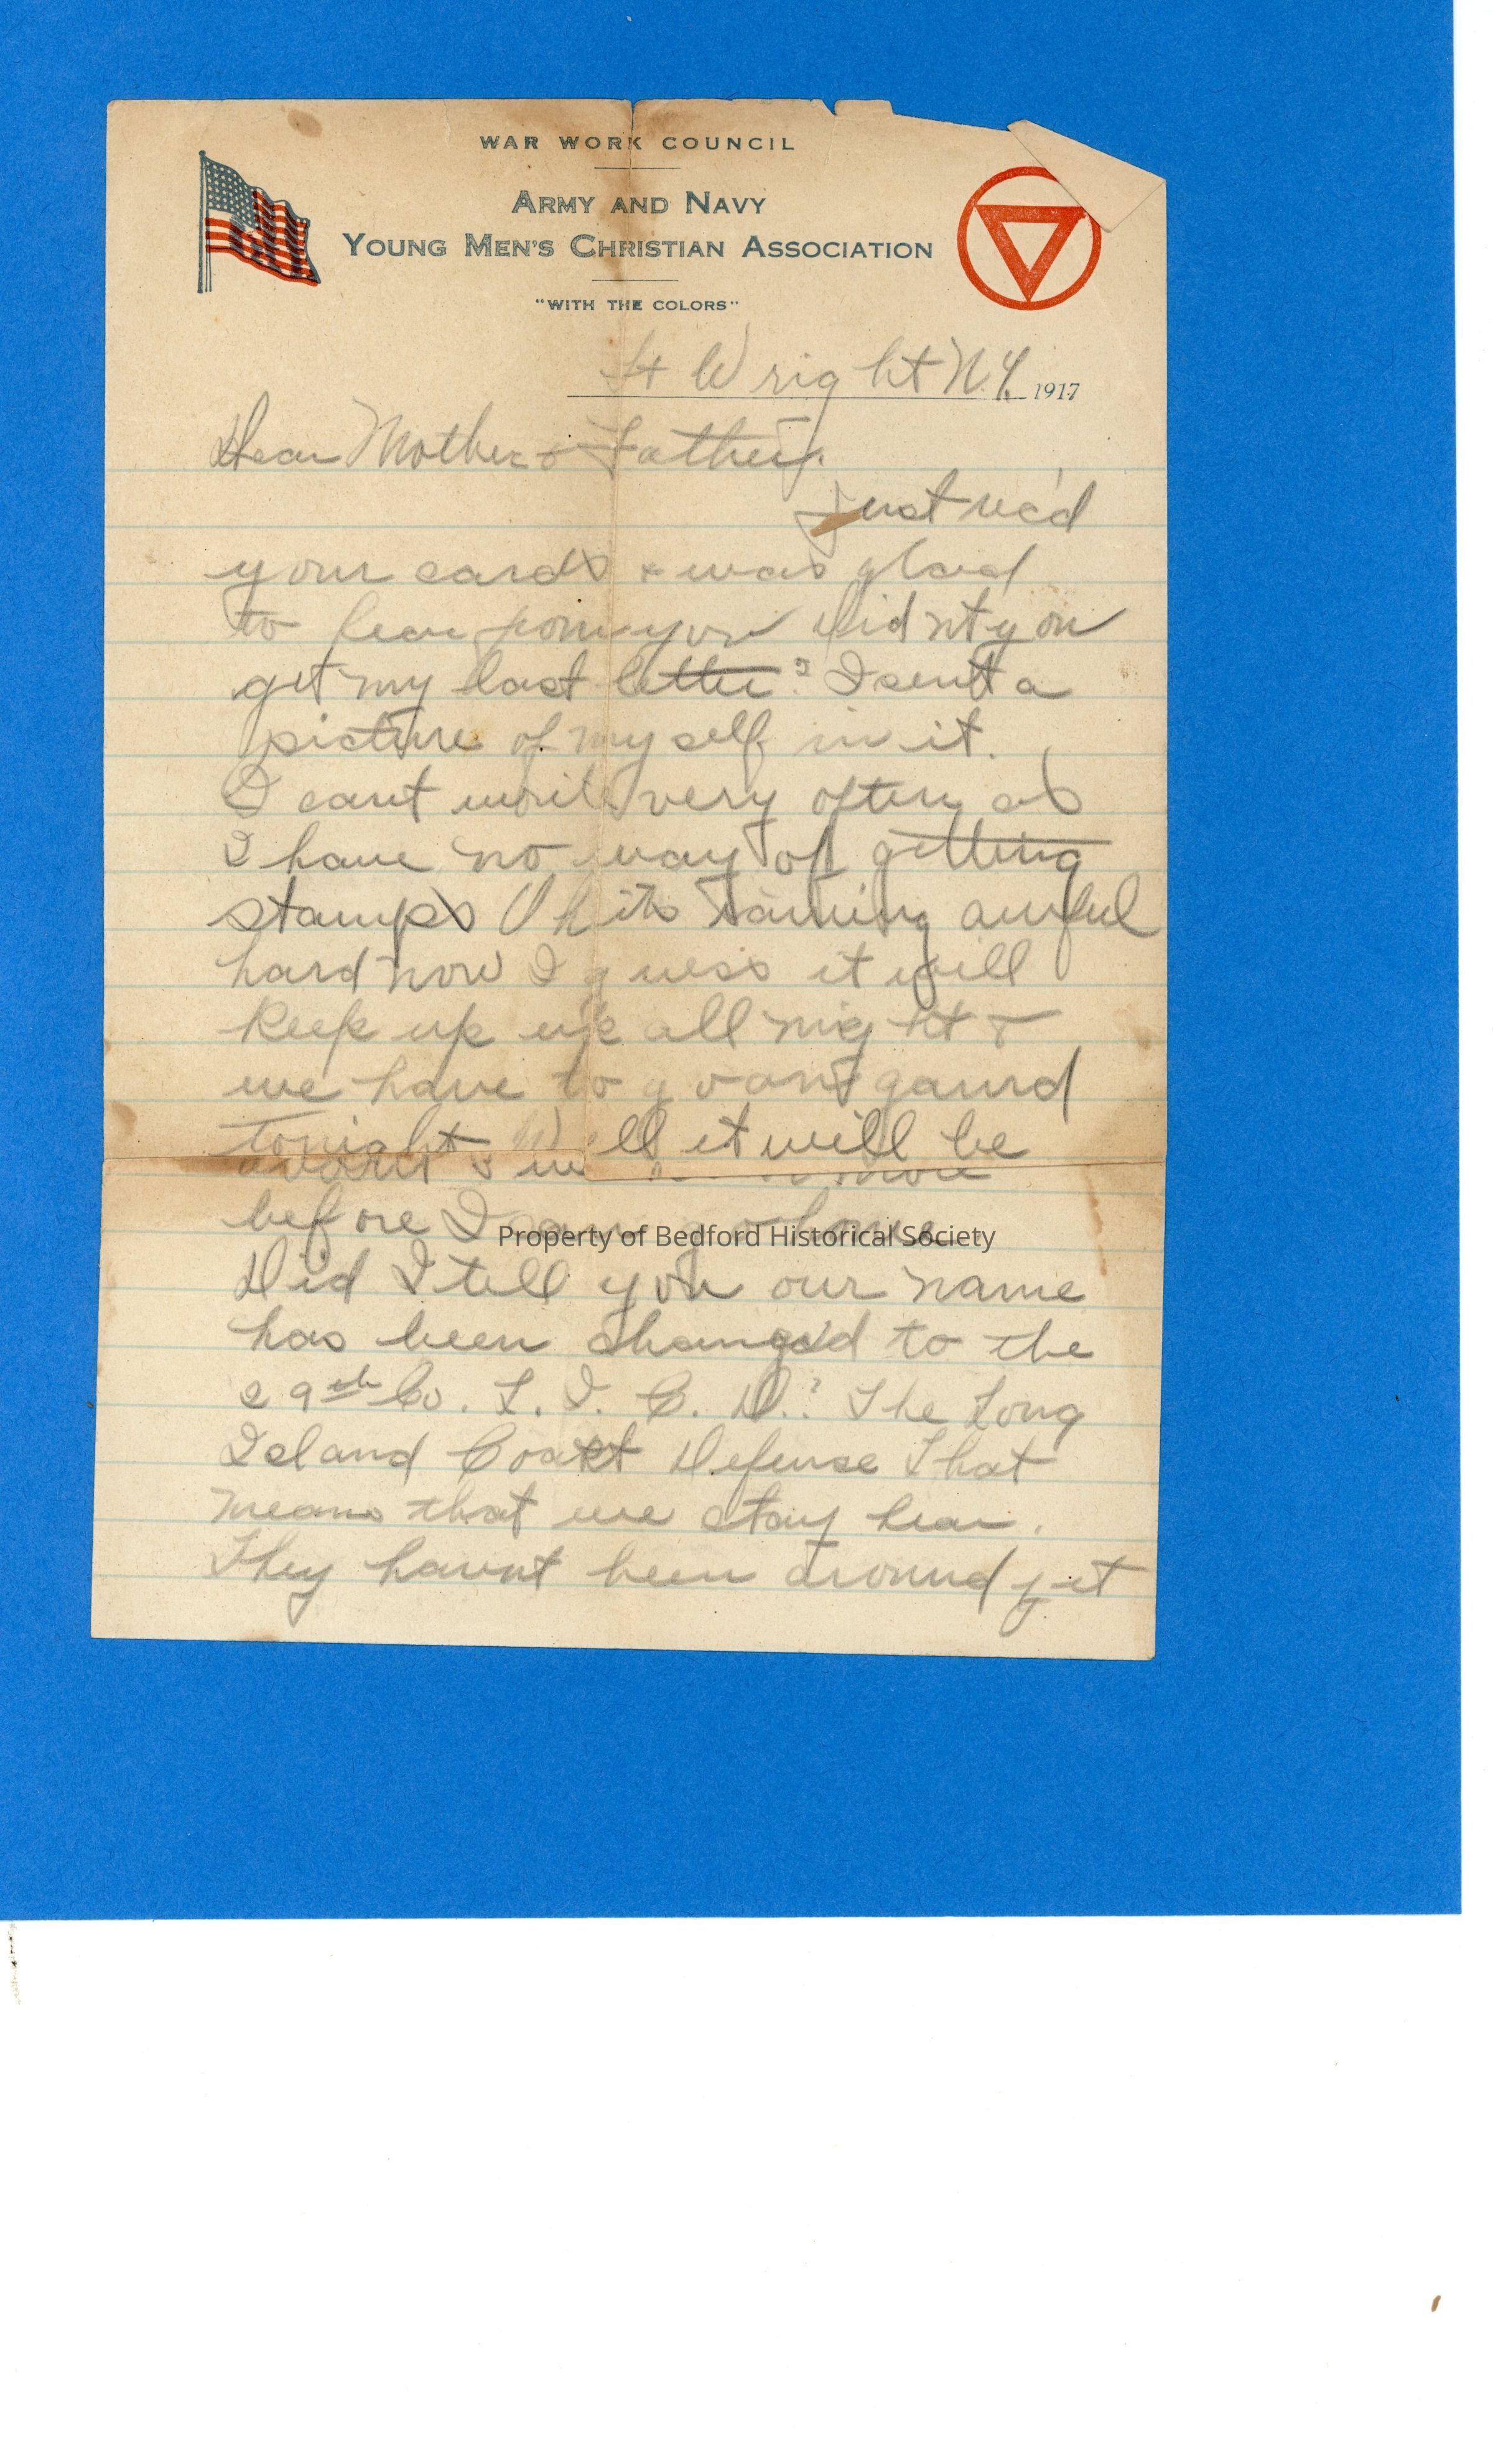 WAR WORK COUNCIL
ARMY AND NAVY
YOUNG MEN'S CHRISTIAN ASSOCIATION
"WITH THE COLORS"
Ft Wright N.Y. 1917
Dear Mother & Father;
Just rec'd
your cards & was glad
to hear from you Didnt you
get my last letter? I sent a
picture of myself in it.
I cant write very often as
I have no way of getting
stamps Oh its raining awful
hard now I guess it will
keep up up all night &
we have to go on gaurd
tonight Well it will be
more
before I can go home
Did I tell you our name
has been changed to the
29th Co. L. I. C. D.? The Long
Island Coast Defense That
means that we stay hear.
They havnt been around yet
Property of Bedford Historical Society